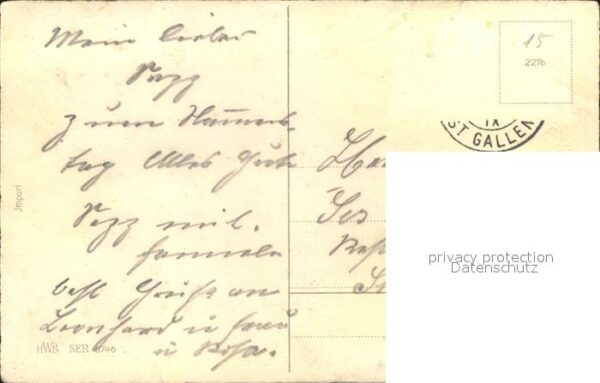 Mein lieber
Sepp
zum Namens-
tag Alles Gute
Sepp mit.
Familie
best Grüße an
Leonhard u Frau
u Rosa.
Import
HWB SER 6746
15
2276
IX
ST GALLEN
privacy protection
Datenschutz